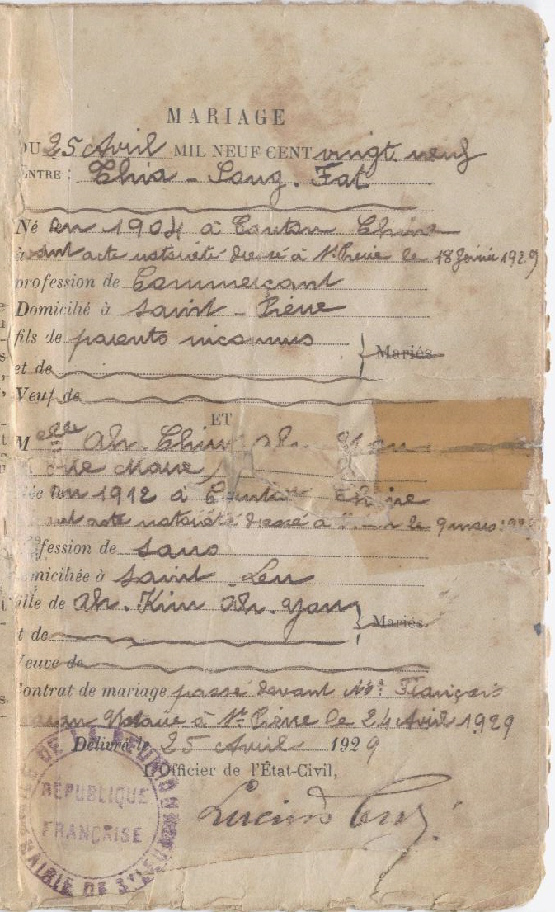 MARIAGE
DU 25 Avril MIL NEUF CENT vingt neuf
ENTRE : Thia - Song. Fat
Né en 1904 à Canton Chine
suivant acte notariété dressé à St Pierre le 18 Janvier 1929
profession de Commerçant
Domicilié à Saint - Pierre
fils de parents inconnus
et de Mariés
Veuf de
ET
Melle Ah. Chin
Marie
Née en 1912 à Canton Chine
acte notariété dressé à le 9 mars
fession de sans
omiciliée à Saint Leu
fille de Ah. Kim Ah. Yan
et de Mariés
Veuve de
Contrat de mariage passé devant Me François
Notaire à St Pierre le 24 Avril 1929
Délivré le 25 Avril 1929
L'Officier de l'État-Civil,
RÉPUBLIQUE
FRANÇAISE
MAIRIE DE ST LEU